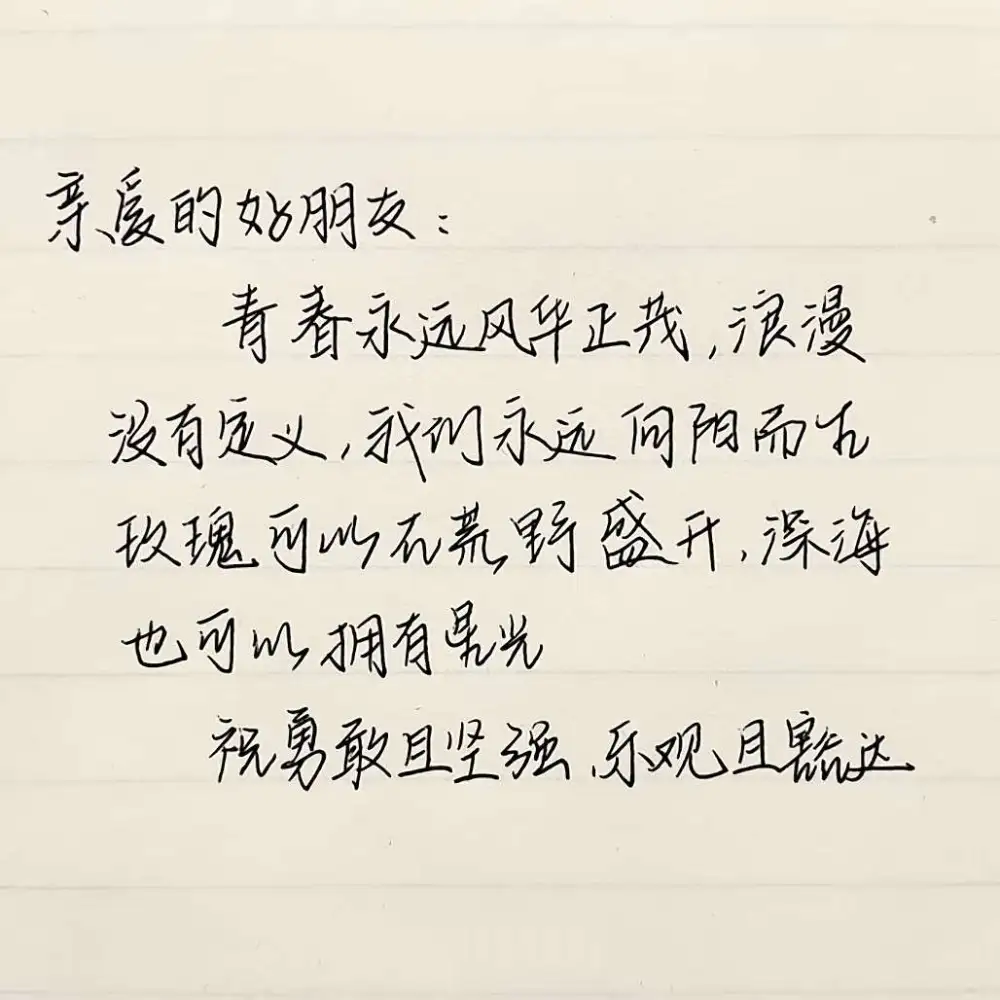 亲爱的好朋友：
青春永远风华正茂，浪漫
没有定义，我们永远向阳而生
玫瑰可以在荒野盛开，深海
也可以拥有星光
祝勇敢且坚强、乐观且豁达